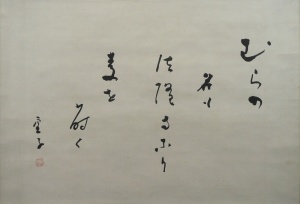 むらの
名も
法隆寺なり
麦を
蒔く
虚子